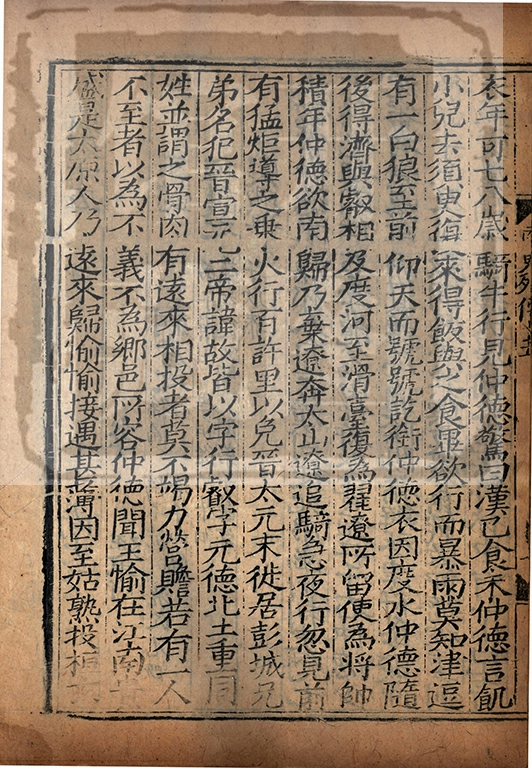 衣年可七八歲騎牛行見仲德驚曰漢已食未仲德言飢
小兒去須臾復來得飯與之食畢欲行而暴雨莫知津逕
有一白狼至前仰天而號號訖銜仲德衣因度水仲德隨
後得濟與叡相及度河至滑臺復為翟遼所留使為將帥
積年仲德欲南歸乃棄遼奔太山遼追騎急夜行忽見前
有猛炬導之乗火行百許里以免晉太元末徙居彭城兄
弟名犯晉宣元二帝諱故皆以字行叡字元德北土重同
姓並謂之骨肉有遠來相投者莫不竭力營贍若有一人
不至者以為不義不為鄉邑所容仲德聞王愉在江南
是太原人乃遠來歸愉愉接遇甚薄因至姑熟投桓
南史列傳十五